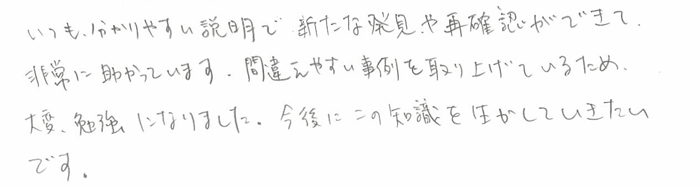 いつも、分かりやすい説明で新たな発見や再確認ができて、
非常に助かっています。間違えやすい事例を取り上げているため、
大変、勉強になりました。今後にこの知識を生かしていきたい
です。